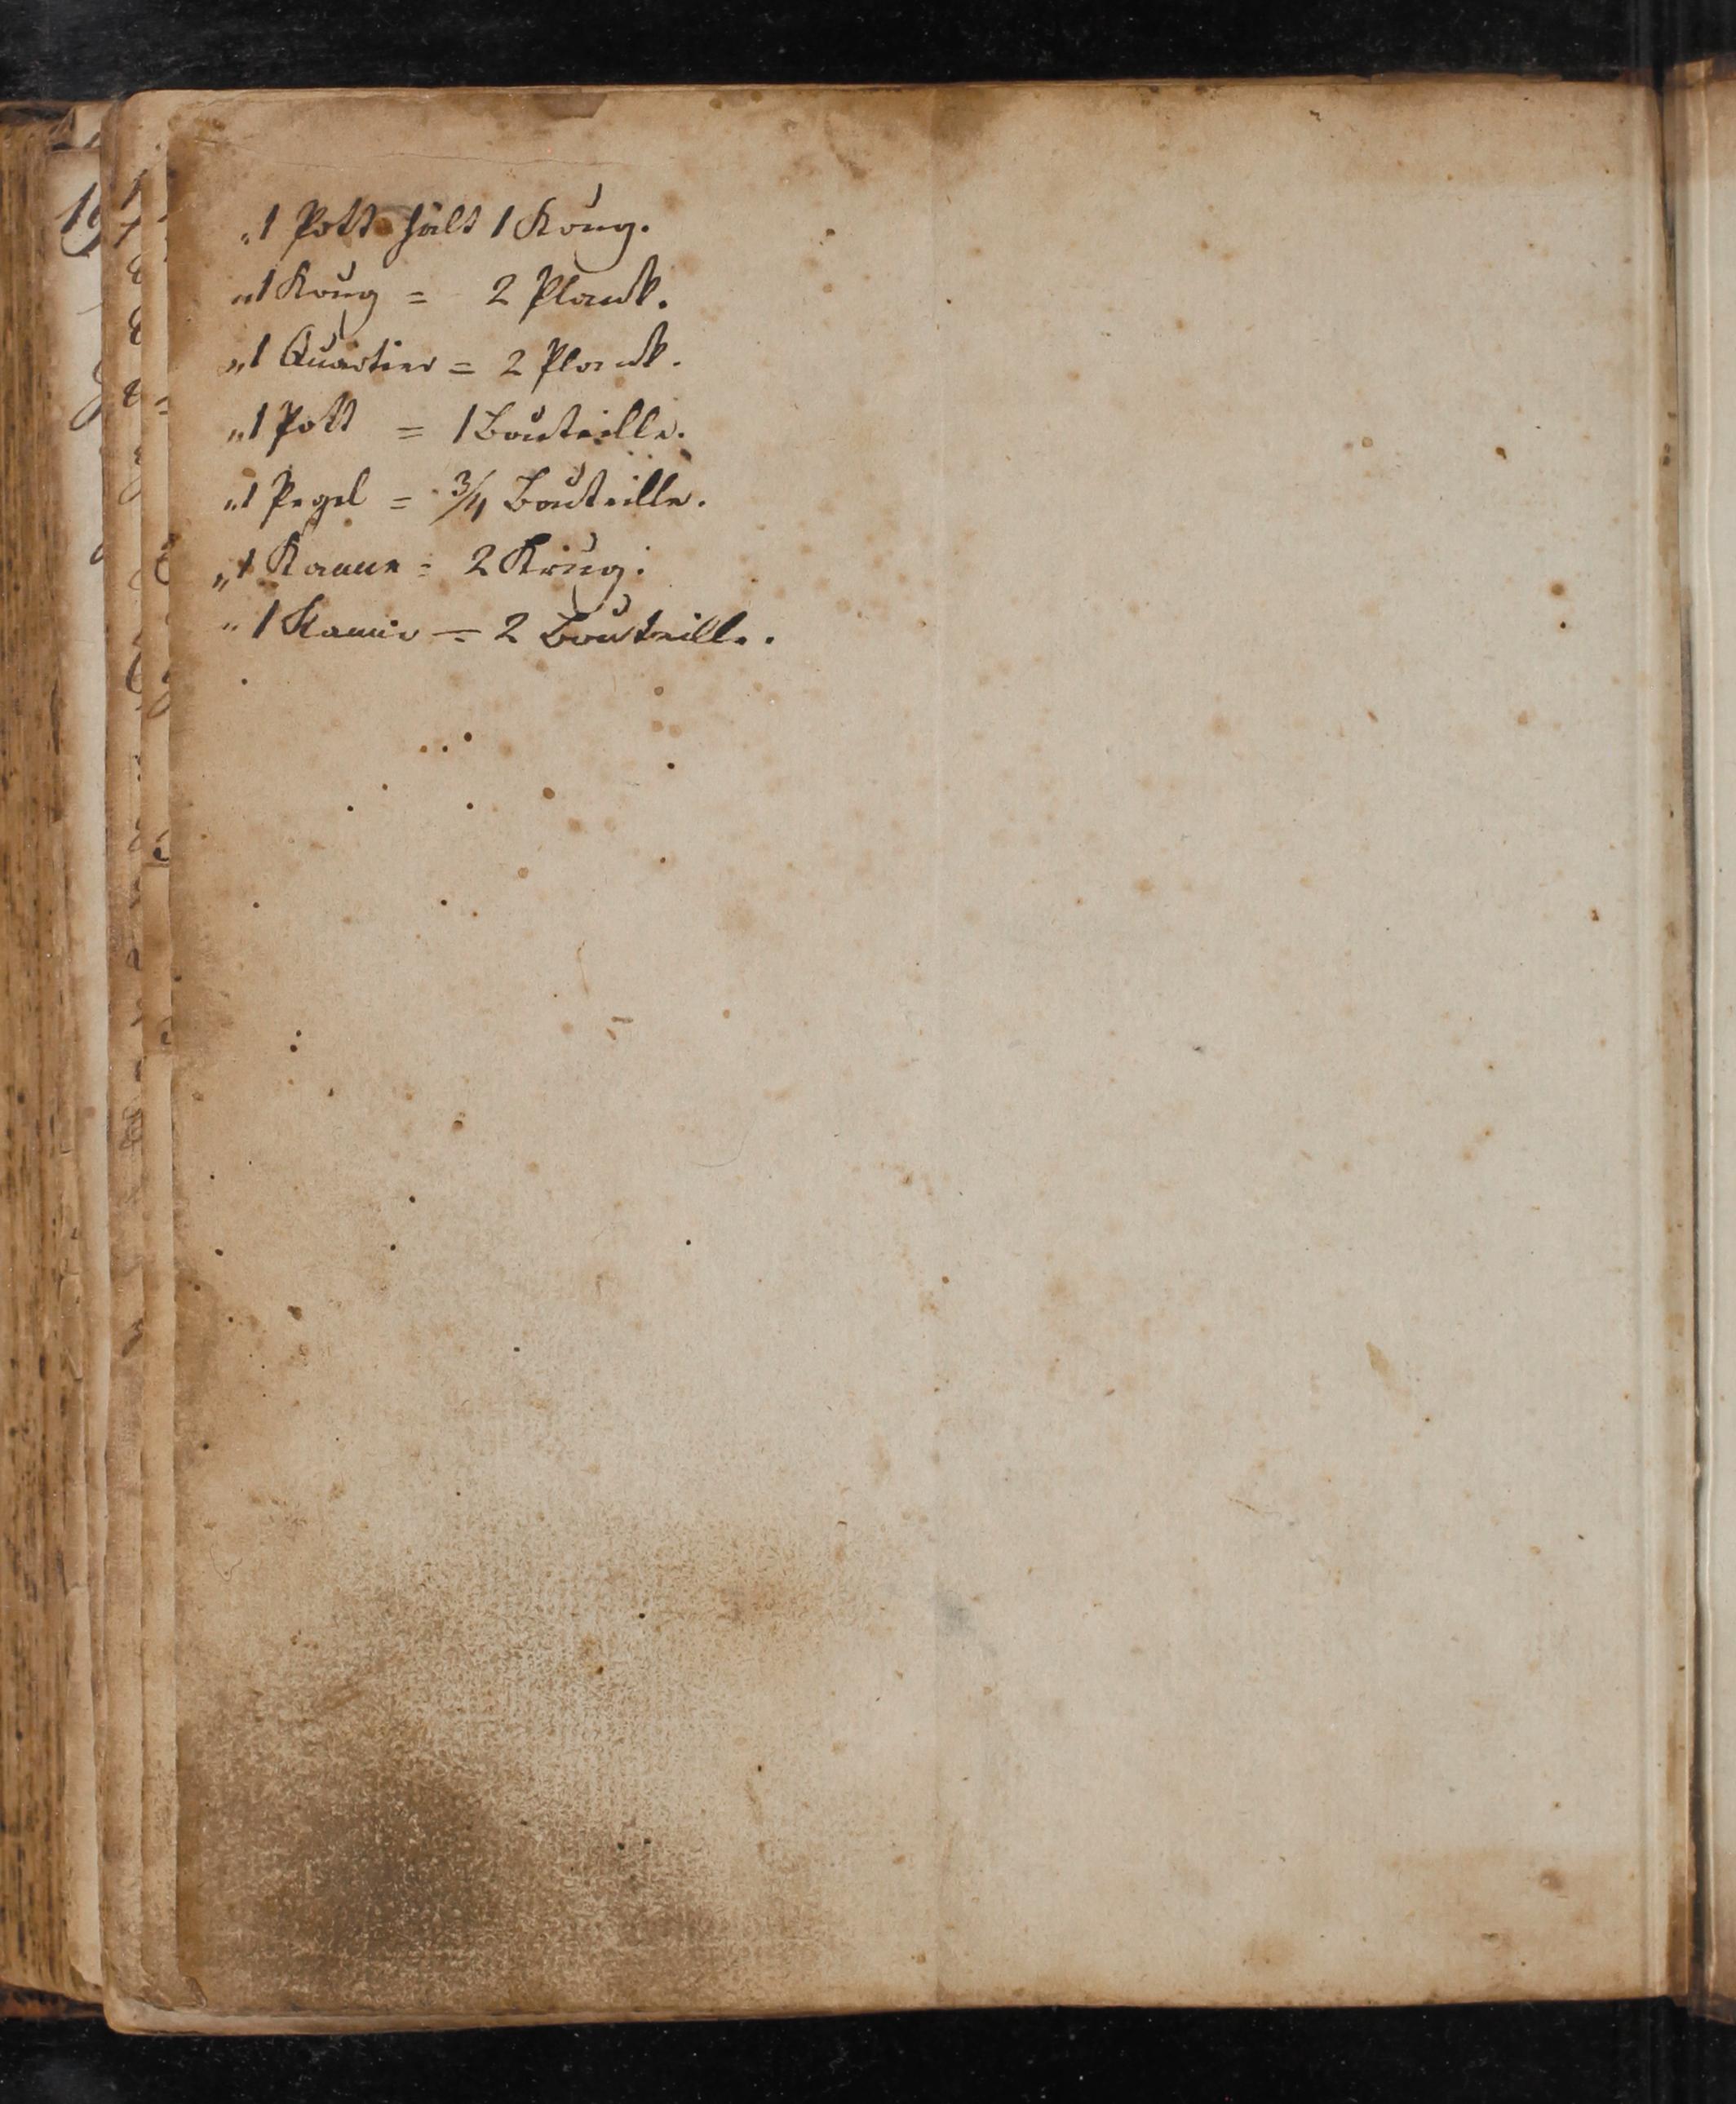 „1 Pott hält 1 Krug.
„1 Krug = 2 Plank.
„1 Quartier = 2 Plank.
„1 Pott = 1 Bouteille.
„1 Pegel = 3/4 Bouteille.
„1 Kanne = 2 Krug.
„1 Kanne = 2 Bouteille.